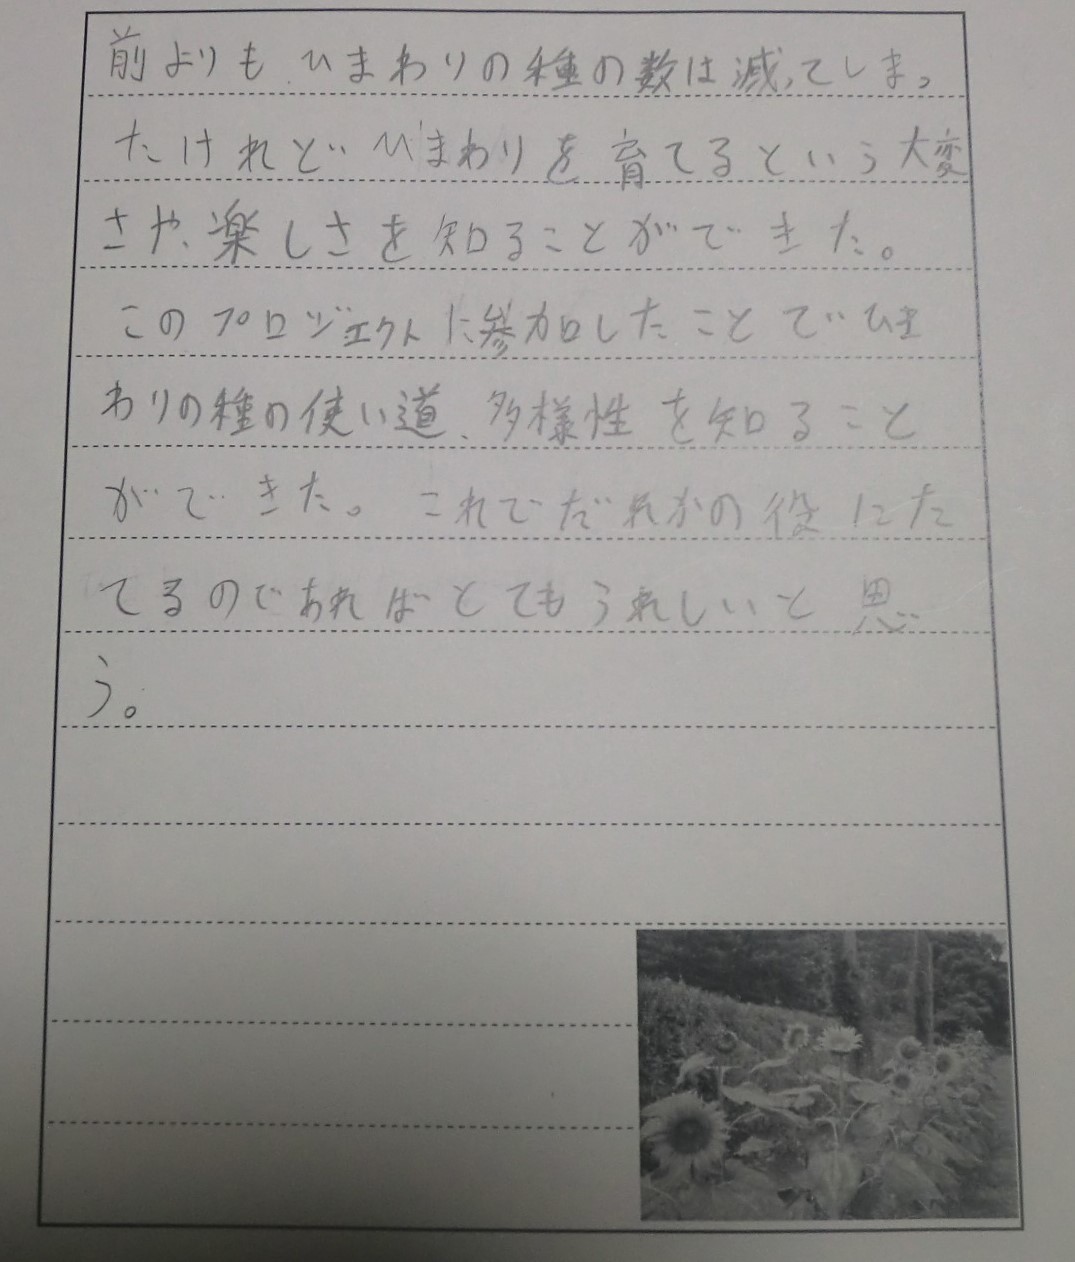 前よりも、ひまわりの種の数は減ってしまっ
たけれど、ひまわりを育てるという大変
さや、楽しさを知ることができた。
このプロジェクトに参加したことでひま
わりの種の使い道、多様性を知ること
ができた。これでだれかの役にた
てるのであればとてもうれしいと思
う。